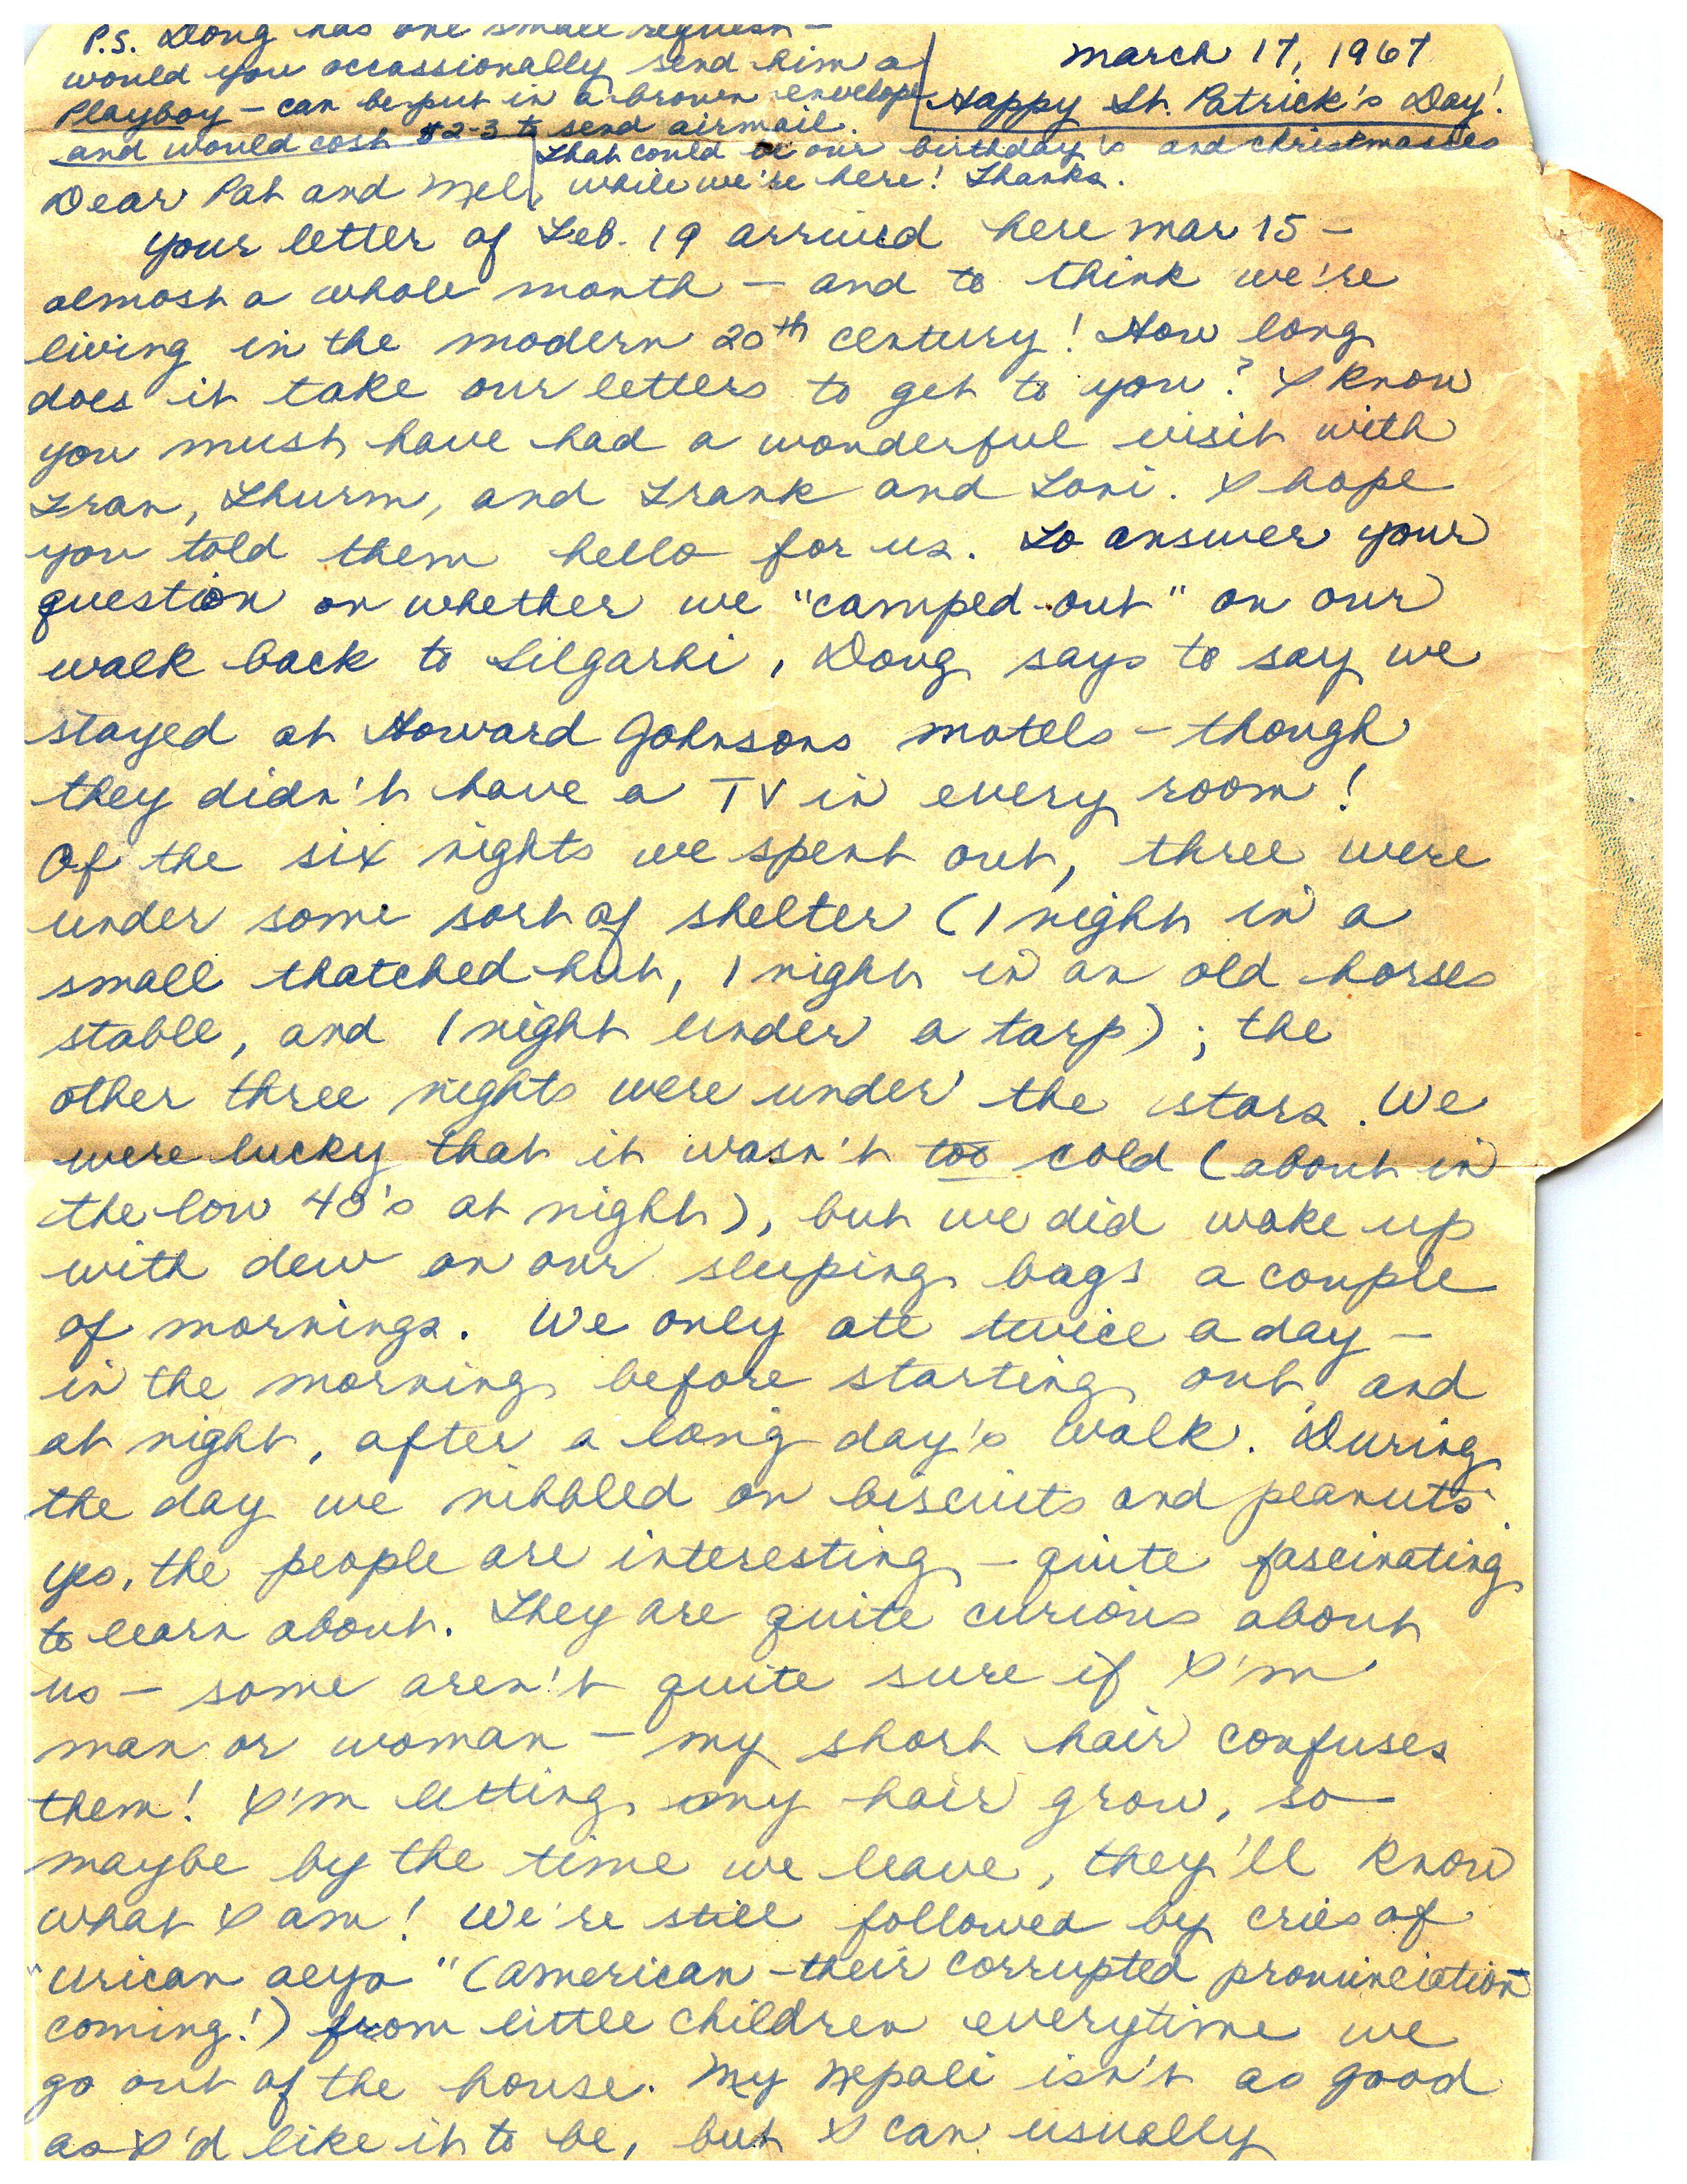 P.S. Doug has one small request –
would you occassionally send him a
Playboy – can be put in a brown envelope
and would cost $2-3 to send airmail.
That could be our birthday's and christmasses
while we're here! Thanks.
March 17, 1967
Happy St. Patrick's Day!
Dear Pat and Mel,
Your letter of Feb. 19 arrived here Mar 15 –
almost a whole month – and to think we're
living in the modern 20th century! How long
does it take our letters to get to you? I know
you must have had a wonderful visit with
Fran, Thurm, and Frank and Toni. I hope
you told them hello for us. To answer your
question on whether we "camped-out" on our
walk back to Silgarhi, Doug says to say we
stayed at Howard Johnsons motels – though
they didn't have a TV in every room!
Of the six nights we spent out, three were
under some sort of shelter (1 night in a
small thatched-hut, 1 night in an old horses
stable, and 1 night under a tarp); the
other three nights were under the stars. We
were lucky that it wasn't too cold (about in
the low 40's at night), but we did wake up
with dew on our sleeping bags a couple
of mornings. We only ate twice a day –
in the morning before starting out, and
at night, after a long day's walk. During
the day we nibbled on biscuits and peanuts.
Yes, the people are interesting – quite fascinating
to learn about. They are quite curious about
us – some aren't quite sure if I'm
man or woman – my short hair confuses
them! I'm letting my hair grow, so
maybe by the time we leave, they'll know
what I am! We're still followed by cries of
"urican aeyo" (American – their corrupted pronunciation
coming!) from little children everytime we
go out of the house. My Nepali isn't as good
as I'd like it to be, but I can usually